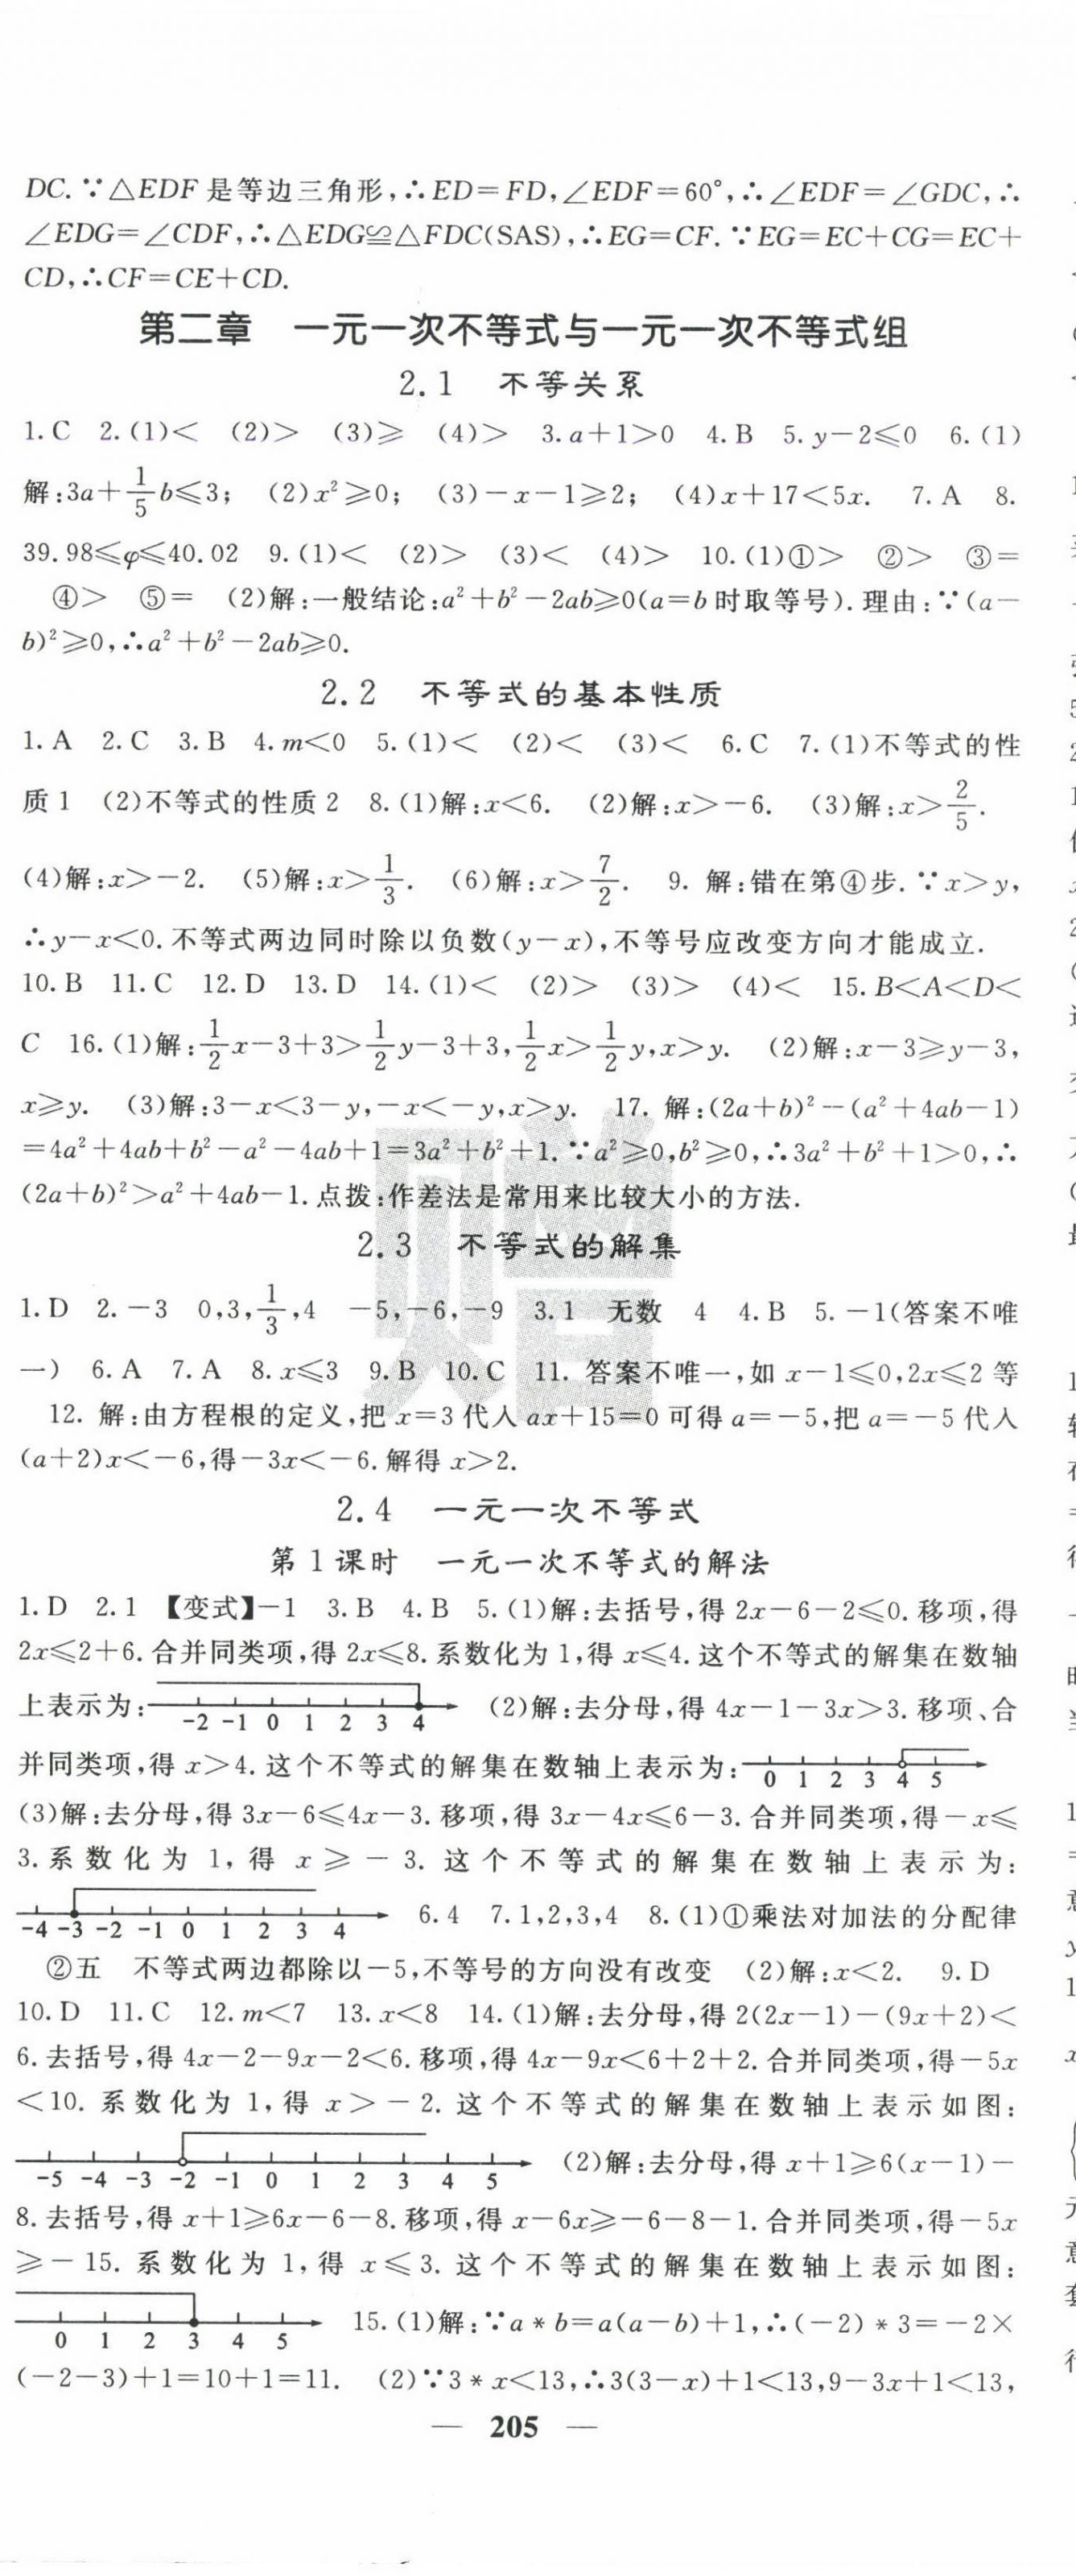 DC.∵△EDF是等边三角形,∴ED=FD,∠EDF=60°,∴∠EDF=∠GDC,∴
∠EDG=∠CDF,∴△EDG≌△FDC(SAS),∴EG=CF.∵EG=EC+CG=EC+
CD,∴CF=CE+CD.
第二章 一元一次不等式与一元一次不等式组
2.1 不等关系
1.C 2.(1)< (2)> (3)≥ (4)> 3.a+1>0 4.B 5.y-2≤0 6.(1)
解:3a+1/5b≤3; (2)x²≥0; (3)-x-1≥2; (4)x+17<5x. 7.A 8.
39.98≤φ≤40.02 9.(1)< (2)> (3)< (4)> 10.(1)①> ②> ③=
④> ⑤= (2)解:一般结论:a²+b²-2ab≥0(a=b时取等号).理由:∵(a-
b)²≥0,∴a²+b²-2ab≥0.
2.2 不等式的基本性质
1.A 2.C 3.B 4.m<0 5.(1)< (2)< (3)< 6.C 7.(1)不等式的性
质1 (2)不等式的性质2 8.(1)解:x<6. (2)解:x>-6. (3)解:x>2/5.
(4)解:x>-2. (5)解:x>1/3. (6)解:x>7/2. 9. 解:错在第④步.∵x>y,
∴y-x<0.不等式两边同时除以负数(y-x),不等号应改变方向才能成立.
10.B 11.C 12.D 13.D 14.(1)< (2)> (3)> (4)< 15.B<A<D<
C 16.(1)解:1/2x-3+3>1/2y-3+3,1/2x>1/2y,x>y. (2)解:x-3≥y-3,
x≥y. (3)解:3-x<3-y,-x<-y,x>y. 17. 解:(2a+b)²-(a²+4ab-1)
=4a²+4ab+b²-a²-4ab+1=3a²+b²+1.∵a²≥0,b²≥0,∴3a²+b²+1>0,∴
(2a+b)²>a²+4ab-1.点拨:作差法是常用来比较大小的方法.
2.3 不等式的解集
1.D 2.-3 0,3,1/3,4 -5,-6,-9 3.1 无数 4 4.B 5.-1(答案不唯
一) 6.A 7.A 8.x≤3 9.B 10.C 11. 答案不唯一,如x-1≤0,2x≤2等
12. 解:由方程根的定义,把x=3代入ax+15=0可得a=-5,把a=-5代入
(a+2)x<-6,得-3x<-6.解得x>2.
2.4 一元一次不等式
第1课时 一元一次不等式的解法
1.D 2.1 【变式】-1 3.B 4.B 5.(1)解:去括号,得2x-6-2≤0.移项,得
2x≤2+6.合并同类项,得2x≤8.系数化为1,得x≤4.这个不等式的解集在数轴
上表示为: -2 -1 0 1 2 3 4 (2)解:去分母,得4x-1-3x>3.移项、合
并同类项,得x>4.这个不等式的解集在数轴上表示为: 0 1 2 3 4 5
(3)解:去分母,得3x-6≤4x-3.移项,得3x-4x≤6-3.合并同类项,得-x≤
3.系数化为1,得x≥-3.这个不等式的解集在数轴上表示为:
-4 -3 -2 -1 0 1 2 3 4 6.4 7.1,2,3,4 8.(1)①乘法对加法的分配律
②五 不等式两边都除以-5,不等号的方向没有改变 (2)解:x<2. 9.D
10.D 11.C 12.m<7 13.x<8 14.(1)解:去分母,得2(2x-1)-(9x+2)<
6.去括号,得4x-2-9x-2<6.移项,得4x-9x<6+2+2.合并同类项,得-5x
<10.系数化为1,得x>-2.这个不等式的解集在数轴上表示如图:
-5 -4 -3 -2 -1 0 1 2 3 4 5 (2)解:去分母,得x+1≥6(x-1)-
8.去括号,得x+1≥6x-6-8.移项,得x-6x≥-6-8-1.合并同类项,得-5x
≥-15.系数化为1,得x≤3.这个不等式的解集在数轴上表示如图:
0 1 2 3 4 5 15.(1)解:∵a*b=a(a-b)+1,∴(-2)*3=-2×
(-2-3)+1=10+1=11. (2)∵3*x<13,∴3(3-x)+1<13,9-3x+1<13,
— 205 —